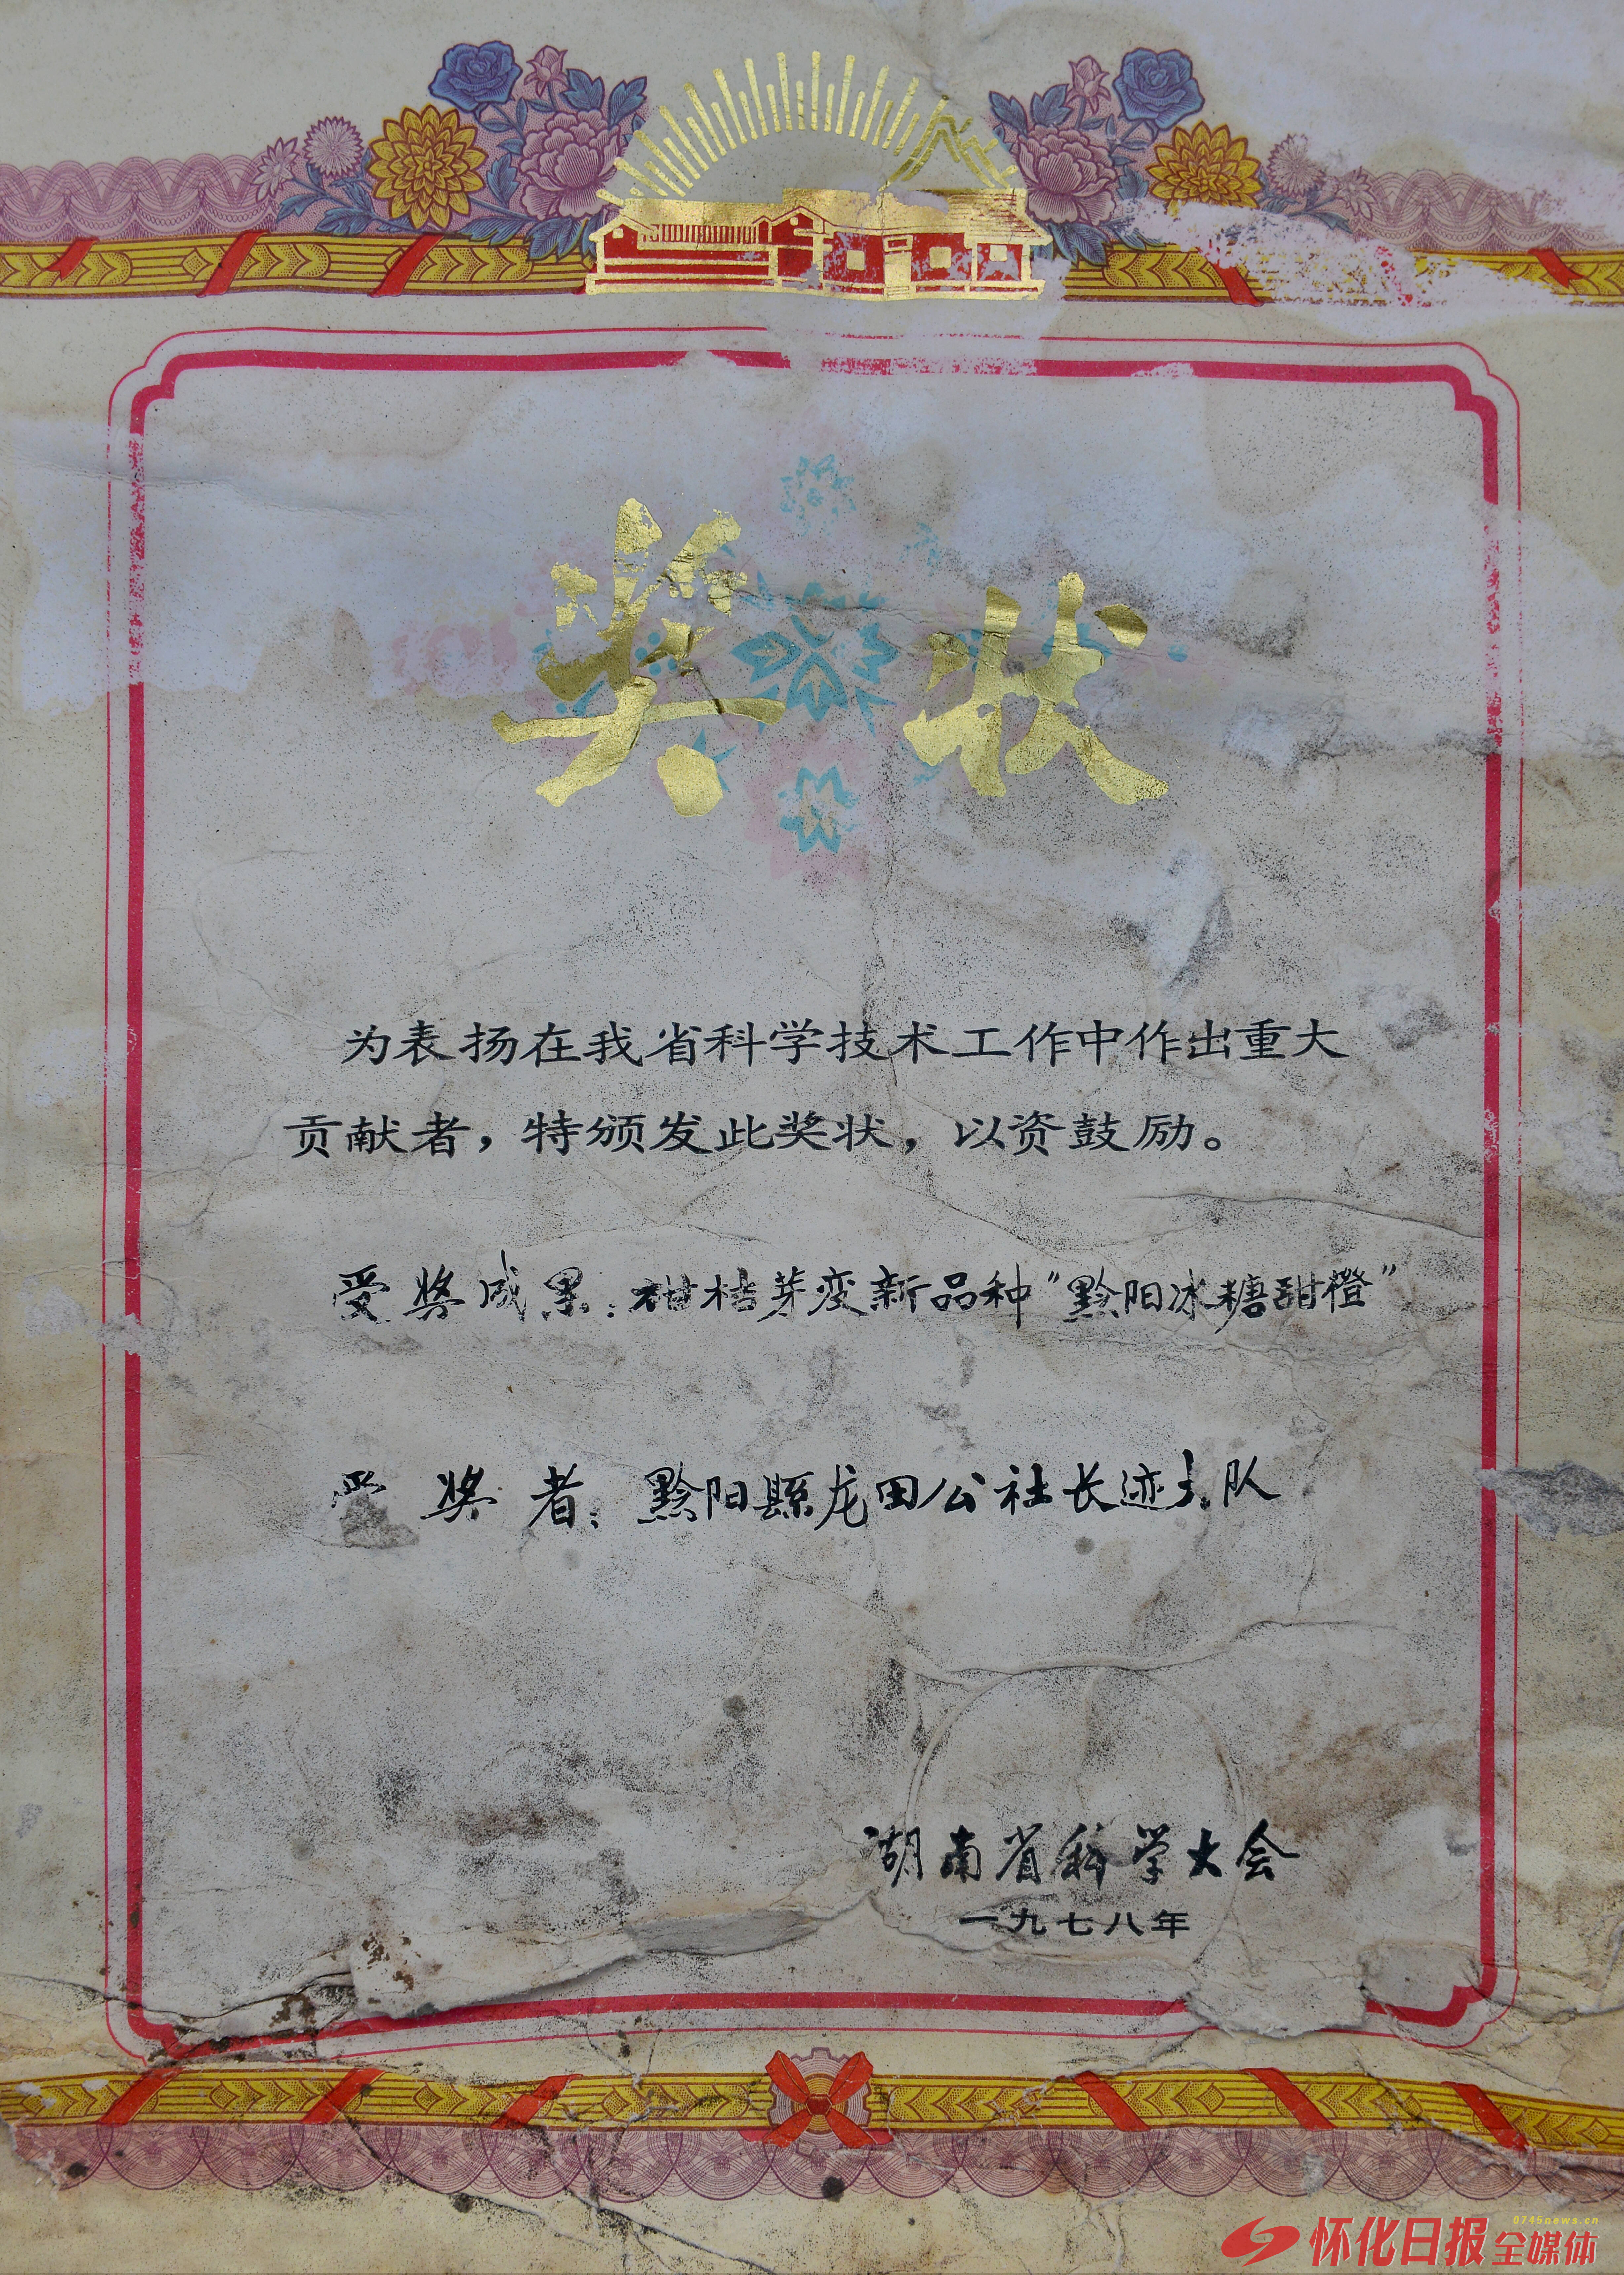 奖状
为表扬在我省科学技术工作中作出重大
贡献者，特颁发此奖状，以资鼓励。
受奖成果：柑桔芽变新品种“黔阳冰糖甜橙”
受奖者：黔阳縣龙田公社长迹大队
湖南省科学大会
一九七八年
0745news.cn
怀化日报全媒体